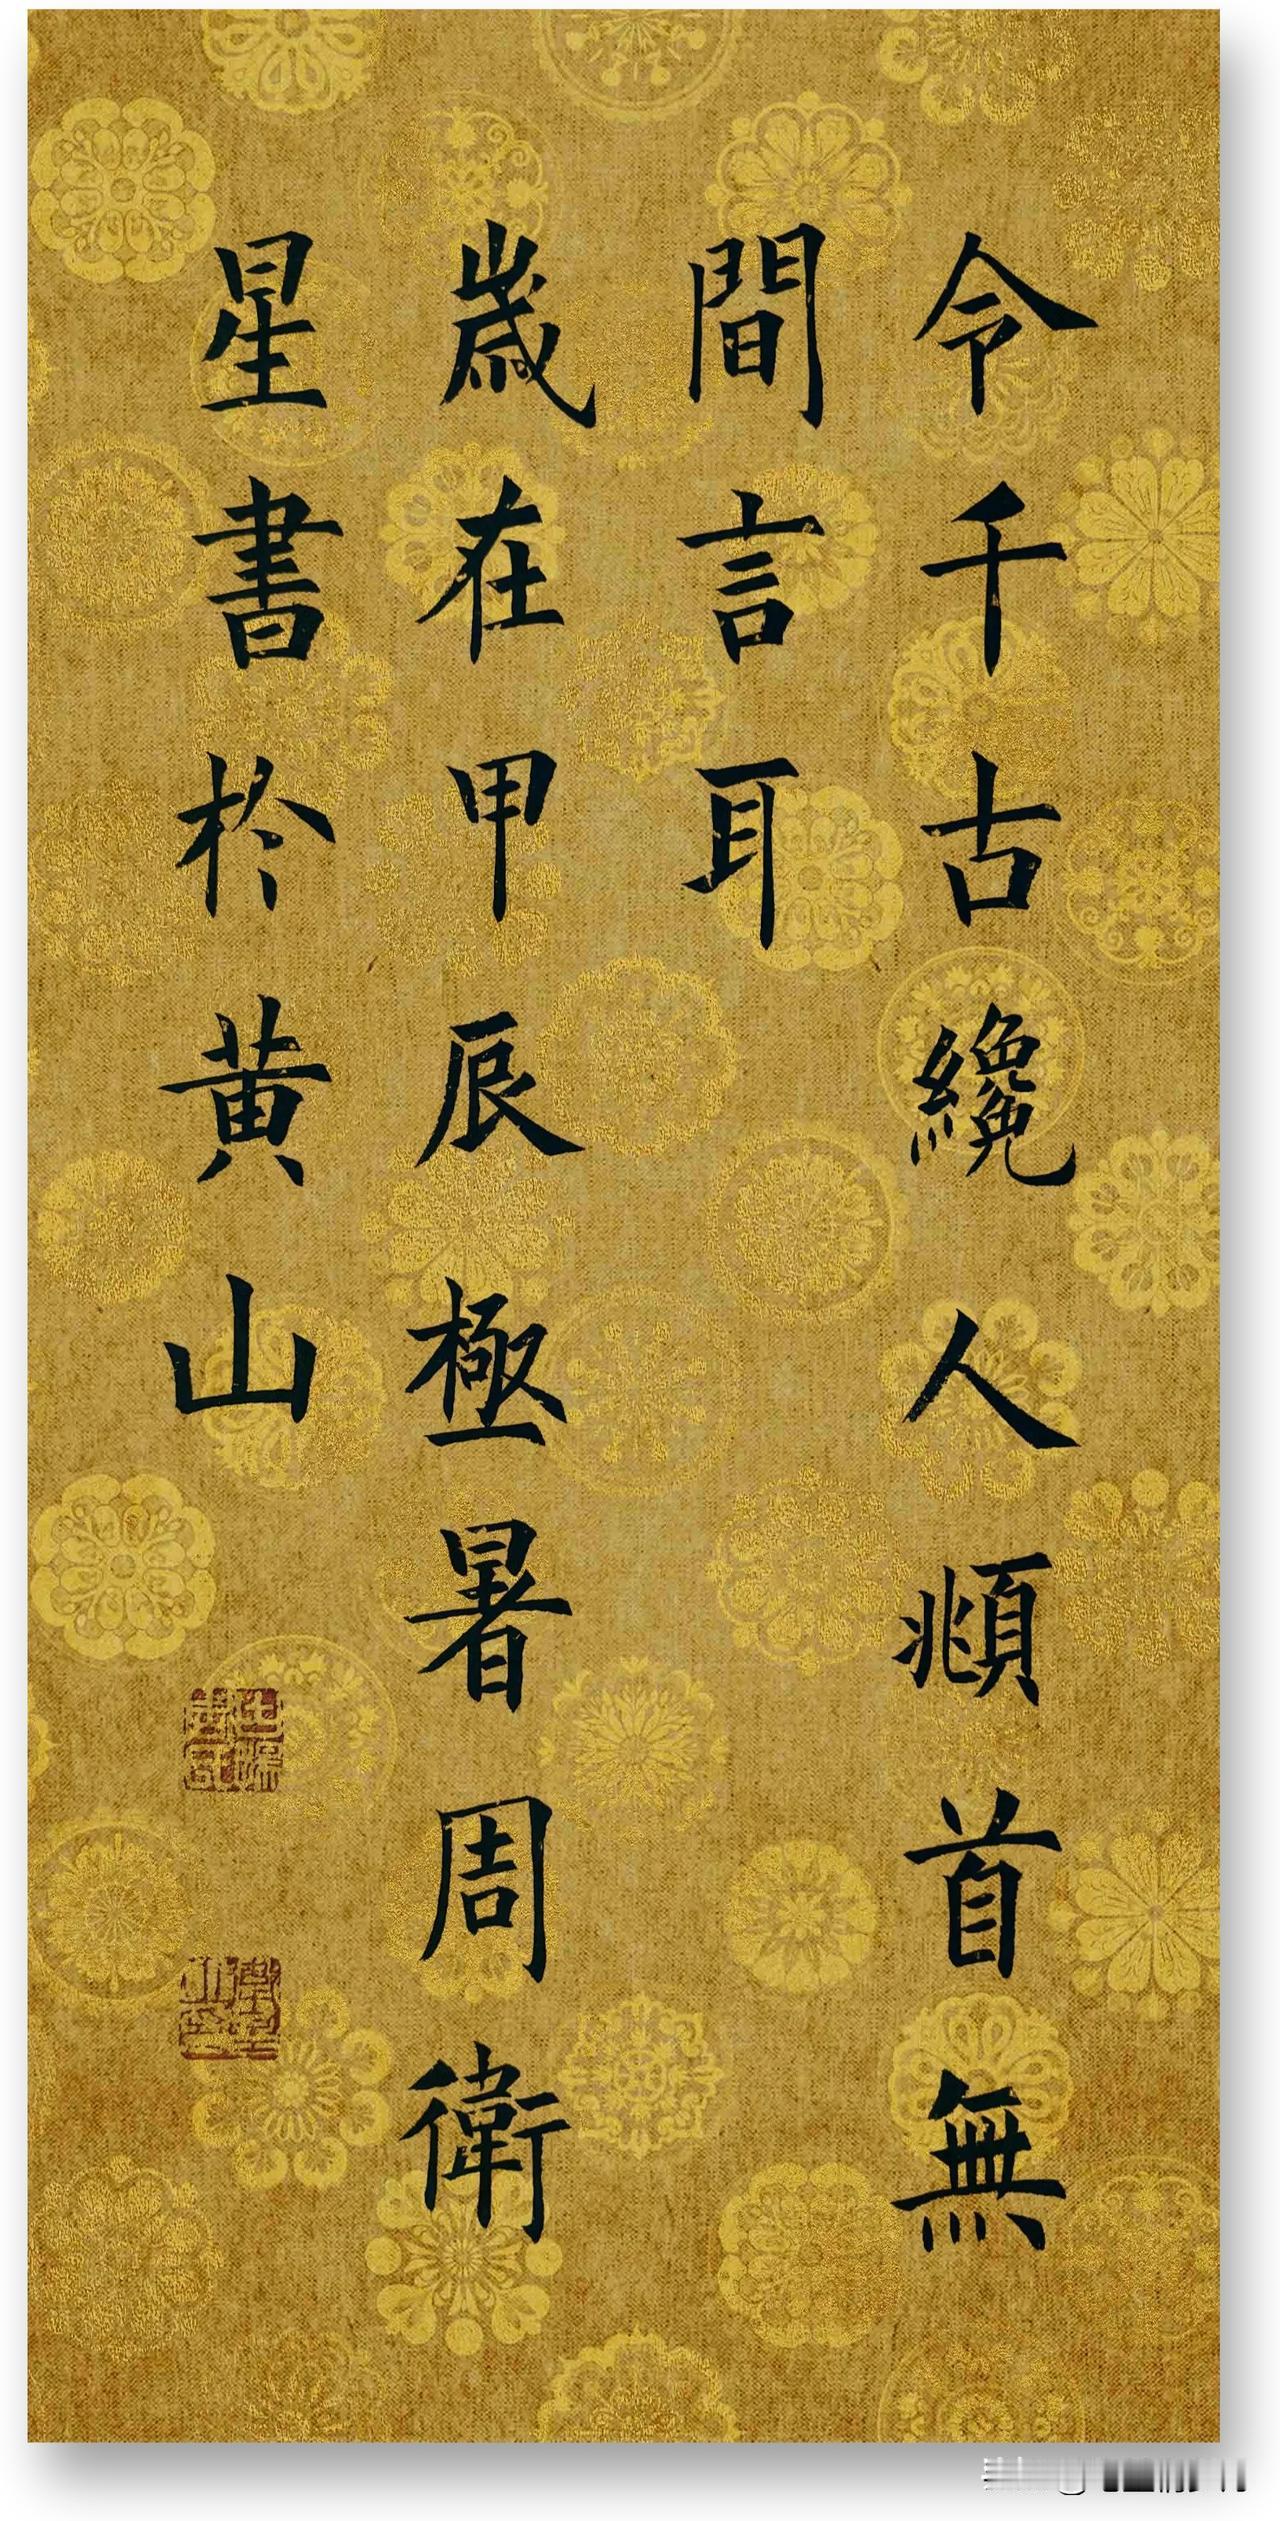 令千古纔人頫首無
間言耳
歲在甲辰極暑周衛
星書於黄山